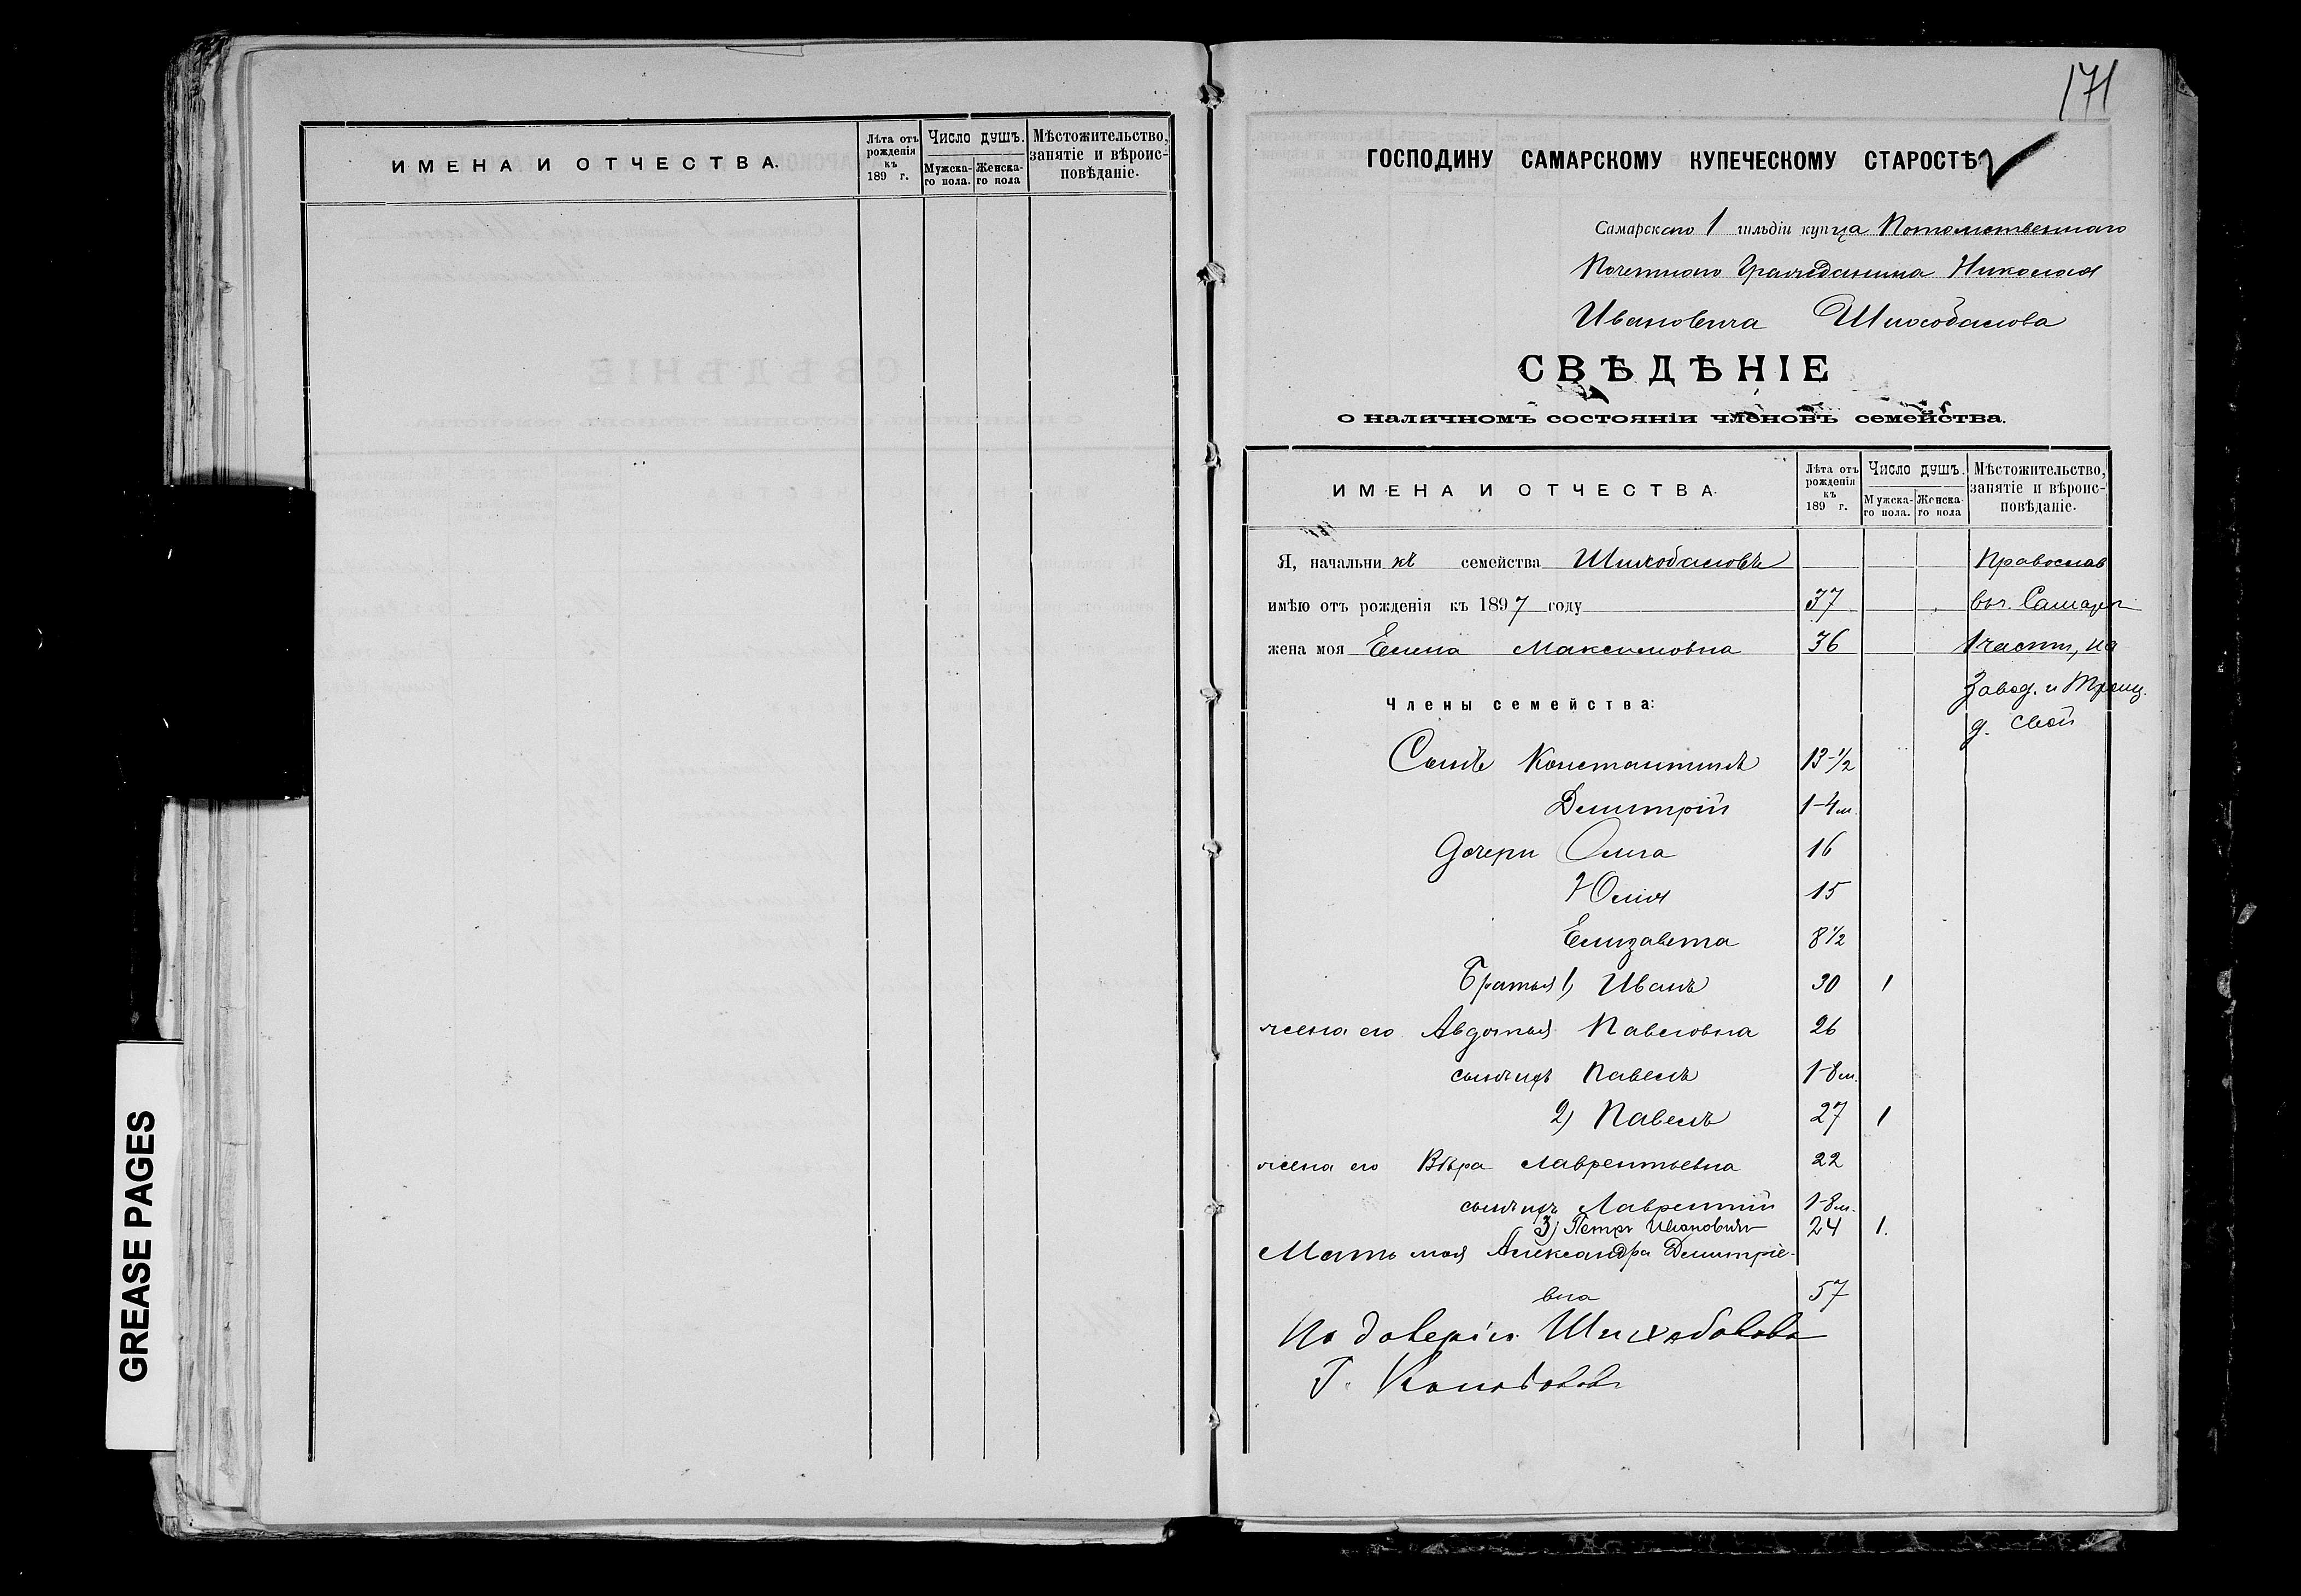 GREASE PAGES
ИМЕНА И ОТЧЕСТВА.
Лѣта отъ рожденія къ 189 г.
Число душъ.
Мужска-го пола.
Женска-го пола
Мѣстожительство, занятіе и вѣроис-повѣданіе.
171
ГОСПОДИНУ САМАРСКОМУ КУПЕЧЕСКОМУ СТАРОСТѢ
Самарскаго 1 гильдіи купца Потомственнаго
Почетнаго Гражданина Николая
Ивановича Шихобалова
СВѢДѢНІЕ
о наличномъ состояніи членовъ семейства.
ИМЕНА И ОТЧЕСТВА.
Лѣта отъ рожденія къ 189 г.
Число душъ.
Мужска-го пола.
Женска-го пола
Мѣстожительство, занятіе и вѣроис-повѣданіе.
Я, начальникъ семейства Шихобаловъ Православ
имѣю отъ рожденія къ 1897 году 37 въ г. Самарѣ
жена моя Елена Максимовна 36 1 части, на
Завод. и Троиц.
Члены семейства:
д. свой
Сынъ Константинъ 13-1/2
Димитрій 1-4 м.
дочери Ольга 16
Юлія 15
Елизавета 8 1/2
Братья 1) Иванъ 30 1
жена его Авдотья Павловна 26
сынъ ихъ Павелъ 1-8 м.
2) Павелъ 27 1
жена его Вѣра Лаврентьевна 22
сынъ ихъ Лаврентій 1-8 м.
3) Петръ Ивановичъ 24 1.
Мать моя Александра Димитріе-
вна 57
По довѣрію Шихобалова
Г.